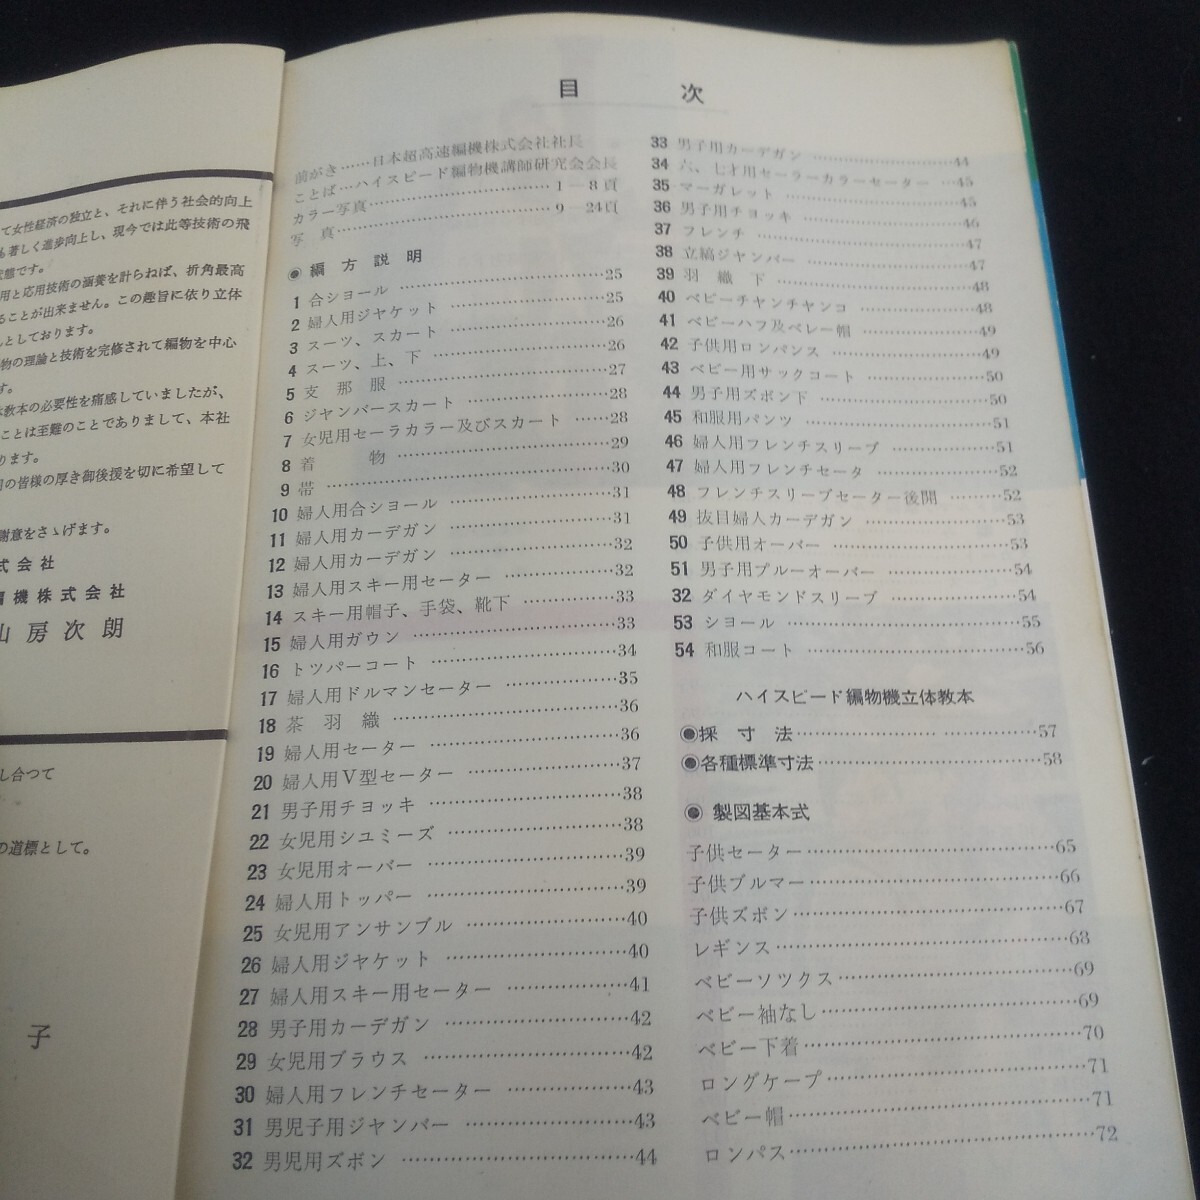 て女性経済の独立と、それに伴う社会的向上
も著しく進歩向上し、現今では此等技術の飛
状態です。
用と応用技術の涵養を計らねば、折角最高
ることが出来ません。この趣旨に依り立体
んとしております。
物の理論と技術を完修されて編物を中心
す。
本教本の必要性を痛感していましたが、
ことは至難のことでありまして、本社
ります。
の皆様の厚き御後援を切に希望して
謝意をさゝげます。
式会社
編機株式会社
山房次朗
し合つて
の道標として。
子
目次
前がき……日本超高速編機株式会社社長
ことば…ハイスピード編物機講師研究会会長
カラー写真…………1―8頁
写真…………9―24頁
◉編方説明
1 合ショール…………25
2 婦人用ジャケット…………25
3 スーツ、スカート…………26
4 スーツ、上、下…………26
5 支那服…………27
6 ジヤンバースカート…………28
7 女児用セーラカラー及びスカート……28
8 着物…………29
9 帯…………30
10 婦人用合ショール…………31
11 婦人用カーデガン…………31
12 婦人用カーデガン…………32
13 婦人用スキー用セーター…………32
14 スキー用帽子、手袋、靴下…………33
15 婦人用ガウン…………33
16 トツパーコート…………34
17 婦人用ドルマンセーター…………35
18 茶羽織…………36
19 婦人用セーター…………36
20 婦人用V型セーター…………37
21 男子用チヨッキ…………38
22 女児用シユミーズ…………38
23 女児用オーバー…………39
24 婦人用トッパー…………39
25 女児用アンサンブル…………40
26 婦人用ジヤケット…………40
27 婦人用スキー用セーター…………41
28 男子用カーデガン…………42
29 女児用ブラウス…………42
30 婦人用フレンチセーター…………43
31 男児子用ジヤンバー…………43
32 男児用ズボン…………44
33 男子用カーデガン…………44
34 六、七才用セーラーカラーセーター…45
35 マーガレット…………45
36 男子用チョッキ…………46
37 フレンチ…………47
38 立縞ジャンバー…………47
39 羽織下…………48
40 ベビーチャンチャンコ…………48
41 ベビーハフ及ベレー帽…………49
42 子供用ロンパンス…………49
43 ベビー用サックコート…………50
44 男子用ズボン下…………50
45 和服用パンツ…………51
46 婦人用フレンチスリーブ…………51
47 婦人用フレンチセータ…………52
48 フレンチスリーブセーター後開………52
49 抜目婦人カーデガン…………53
50 子供用オーバー…………53
51 男子用プルーオーバー…………54
32 ダイヤモンドスリーブ…………54
53 ショール…………55
54 和服コート…………56
ハイスピード編物機立体教本
◉採寸法…………57
◉各種標準寸法…………58
◉製図基本式
子供セーター…………65
子供ブルマー…………66
子供ズボン…………67
レギンス…………68
ベビーソツクス…………69
ベビー袖なし…………69
ベビー下着…………70
ロングケープ…………71
ベビー帽…………71
ロンパス…………72